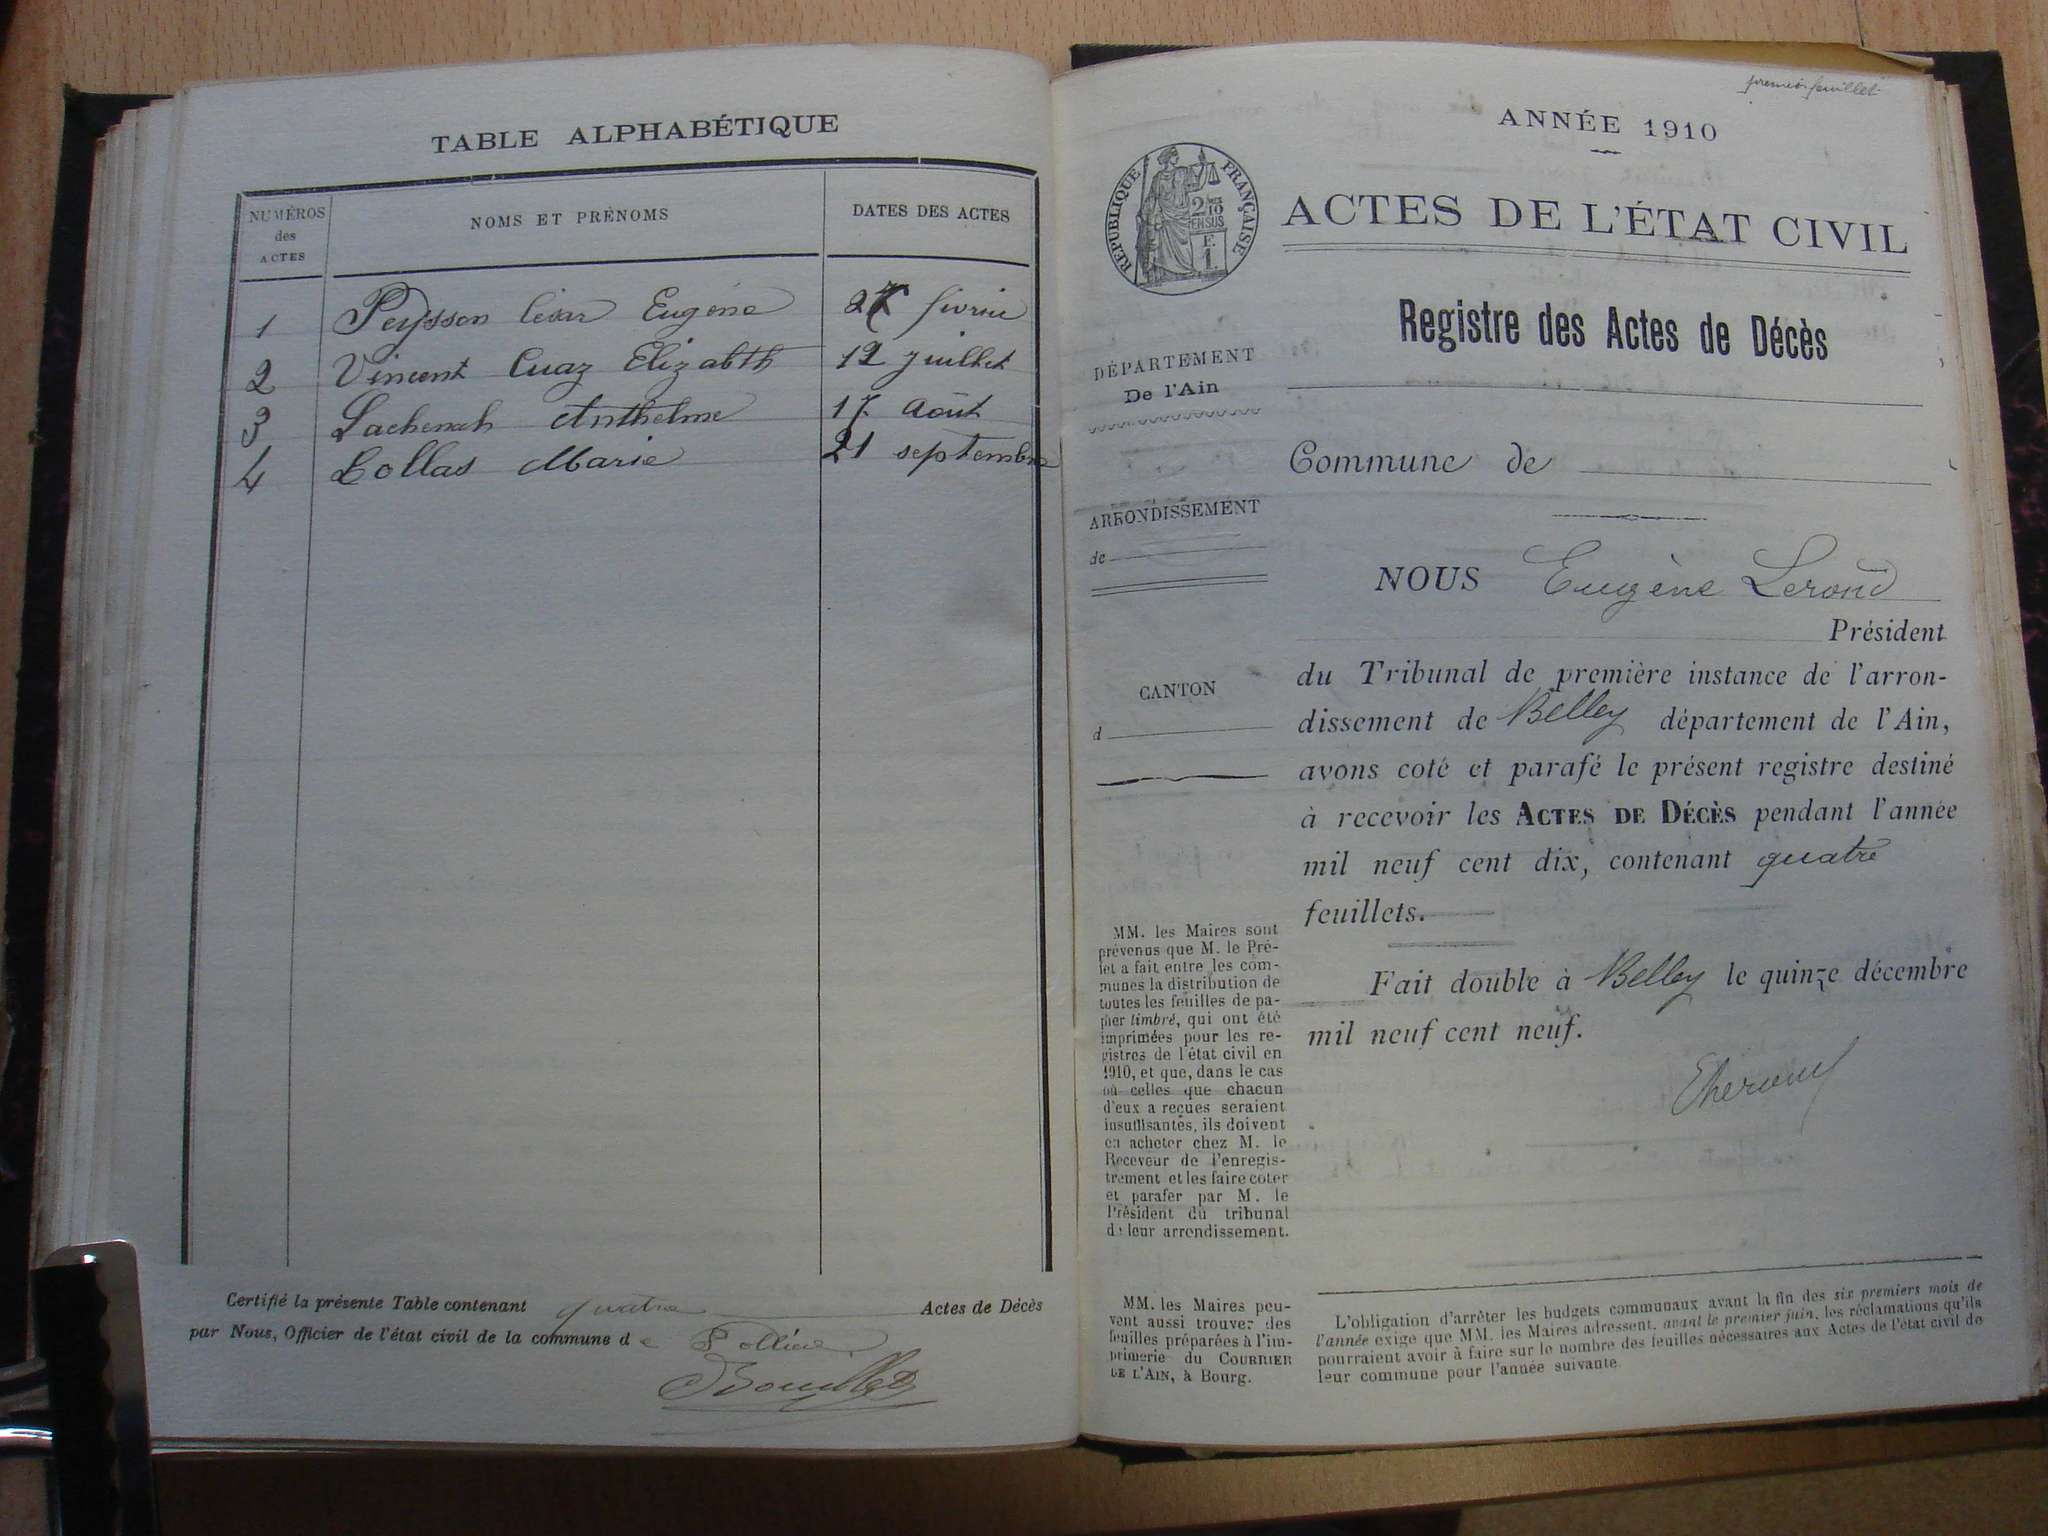 TABLE ALPHABÉTIQUE
NUMÉROS
des
ACTES
NOMS ET PRÉNOMS
DATES DES ACTES
1 Peysson César Eugène février
2 Vincent Cuaz Elizabth 12 juillet
3 Anthelme 17 Août
4 Collas Marie 21 septembre
Certifié la présente Table contenant quatre Actes de Décès
par Nous, Officier de l'état civil de la commune de Pollieu
premier feuillet
ANNÉE 1910
RÉPUBLIQUE FRANÇAISE
ACTES DE L'ÉTAT CIVIL
Registre des Actes de Décès
DÉPARTEMENT
De l'Ain
Commune de
ARRONDISSEMENT
de
NOUS Eugène Lerond
Président
du Tribunal de première instance de l'arron-
CANTON
dissement de Belley département de l'Ain,
d
avons coté et parafé le présent registre destiné
à recevoir les ACTES DE DÉCÈS pendant l'année
mil neuf cent dix, contenant quatre
feuillets.
Fait double à Belley le quinze décembre
mil neuf cent neuf.
MM. les Maires sont
prévenus que M. le Pré-
fet a fait entre les com-
munes la distribution de
toutes les feuilles de pa-
pier timbré, qui ont été
imprimées pour les re-
gistres de l'état civil en
1910, et que, dans le cas
où celles que chacun
d'eux a reçues seraient
insuffisantes, ils doivent
en acheter chez M. le
Receveur de l'enregis-
trement et les faire coter
et parafer par M. le
Président du tribunal
de leur arrondissement.
MM. les Maires peu-
vent aussi trouver des
feuilles préparées à l'im-
primerie du COURRIER
DE L'AIN, à Bourg.
L'obligation d'arrêter les budgets communaux avant la fin des six premiers mois de
l'année exige que MM. les Maires adressent, avant le premier juin, les réclamations qu'ils
pourraient avoir à faire sur le nombre des feuilles nécessaires aux Actes de l'état civil de
leur commune pour l'année suivante.